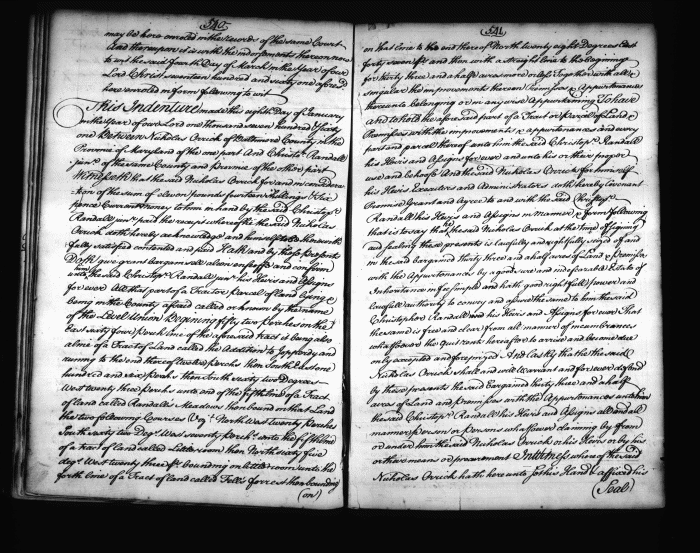 540
may be here enroled in the records of the same Court
And thereupon it is with the indorsments thereon now
to wit the said fourth Day of March in the Year of our
Lord Christ seventeen hundred and sixty one aforesd
here enroled in form following to wit
This Indenture made the eighth Day of January
in the Year of our Lord one thousand seven hundred & sixty
one Between Nicholas Orrick of Baltimore County in the
Province of Maryland of the one part And Christr Randall
junr of the same County and Province of the other part
Witnesseth that the said Nicholas Orrick for and in considera
tion of the sum of eleven pounds fourteen shillings &
pence Current money to him in hand by the said Christopr
Randall junr paid the receipt whereof he the said Nicholas
Orrick doth hereby acknowledge and himself to be therewith
fully satisfied contented and paid Hath and by these Presents
Doth give grant bargain sell alien enfeoff and confirm
unto the said Christopr Randall junr his Heirs and Assigns
for ever All that part of a Tract or Parcel of Land being &
being in the County aforesd called or known by the name
of the Level Union Begining fifty two perches on the
East sixty four perch line of the aforesaid tract is being also
a line of a Tract of Land called the Addition to Jeopardy and
running to the end thereof twelve perches then South East one
hundred and six perches then South sixty two Degrees
West twenty three Perches unto end of the fifth line of a Tract
of land called Randalls Meadows then bound on that Land
the two following Courses Vizt North West twenty perches
South sixty two Degs West seventy perchs unto the fifth line
of a tract of land called Little room then North sixty five
degs West twenty three ps bounding on little room unto the
forth line of a Tract of land called Tells forrest then bounding
(on)
541
on that line to the end there of North twenty eight Degrees East
forty seven ps and then with a straight line to the beginning
for thirty three and a half acres more or less Together with all &
singular the improvements thereon Premisses & Appurtenances
thereunto belonging or in any wise Appertaining To have
And to hold the aforesaid part of a Tract or Parcel of Land &
Premisses with the improvements & appurtenances and every
part and parcel thereof unto him the said Christopr Randall
his Heirs and Assigns for ever and unto his & their proper
use and behoofs And the said Nicholas Orrick for himself
his Heirs Executors and Administrators doth hereby Covenant
Promise Grant and Agree to and with the said Christopr
Randall his Heirs and Assigns in Manner & form following
that is to say that the said Nicholas Orrick at the time of signing
and sealing these presents is lawfully and rightfully seized of and
in the said bargained thirty three and a half acres of Land & Premisses
with the Appurtenances by a good sure and indefeazable Estate of
Inheritance in fee simple and hath good rightfull power and
lawfull authority to convey and assure the same to him the said
Christopher Randall and his Heirs and Assigns for ever That
the same is free and clear from all manner of incumbrances
whatsoever the quitrents hereafter to arrive and become due
only excepted and foreprized And Lastly that he the said
Nicholas Orrick shall and will warrant and for ever defend
by these presents the said bargained thirty three and a half
acres of Land and Premisses with the Appurtenances unto him
the said Christopr Randall his Heirs and Assigns all and all
manner person or Persons whatsoever claiming by from
or under him the said Nicholas Orrick or his Heirs or by his
or their means or procurement In Witness where of the said
Nicholas Orrick hath here unto set his Hand & affixed his
(Seal)